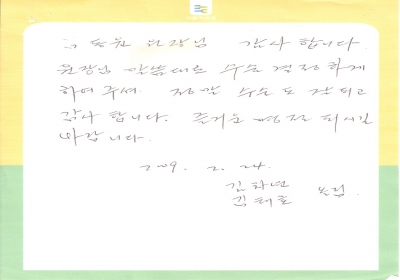 원장님 감사합니다.
원장님 말씀대로 수술 결정하게
하여 주셔. 정말 수술도 잘 되고
감사 합니다. 즐거운 명절 되시길
바랍니다.
2009. 2. 24.
김차년
김태호 드림